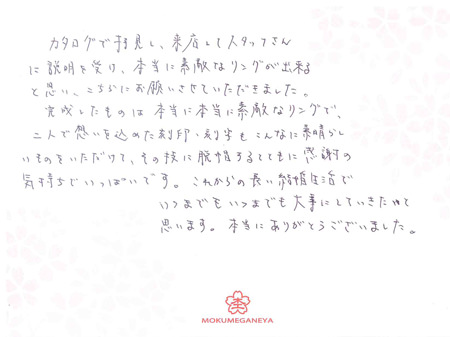 カタログで拝見し、来店してスタッフさん
に説明を受け、本当に素敵なリングが出来る
と思い、こちらにお願いさせていただきました。
完成したものは本当に本当に素敵なリングで、
二人で想いを込めた刻印・刻字もこんなに素晴らし
いものをいただけて、その技に脱帽するとともに感謝の
気持ちでいっぱいです。これからの長い結婚生活で
いつまでもいつまでも大事にしていきたいと
思います。本当にありがとうございました。
MOKUMEGANEYA